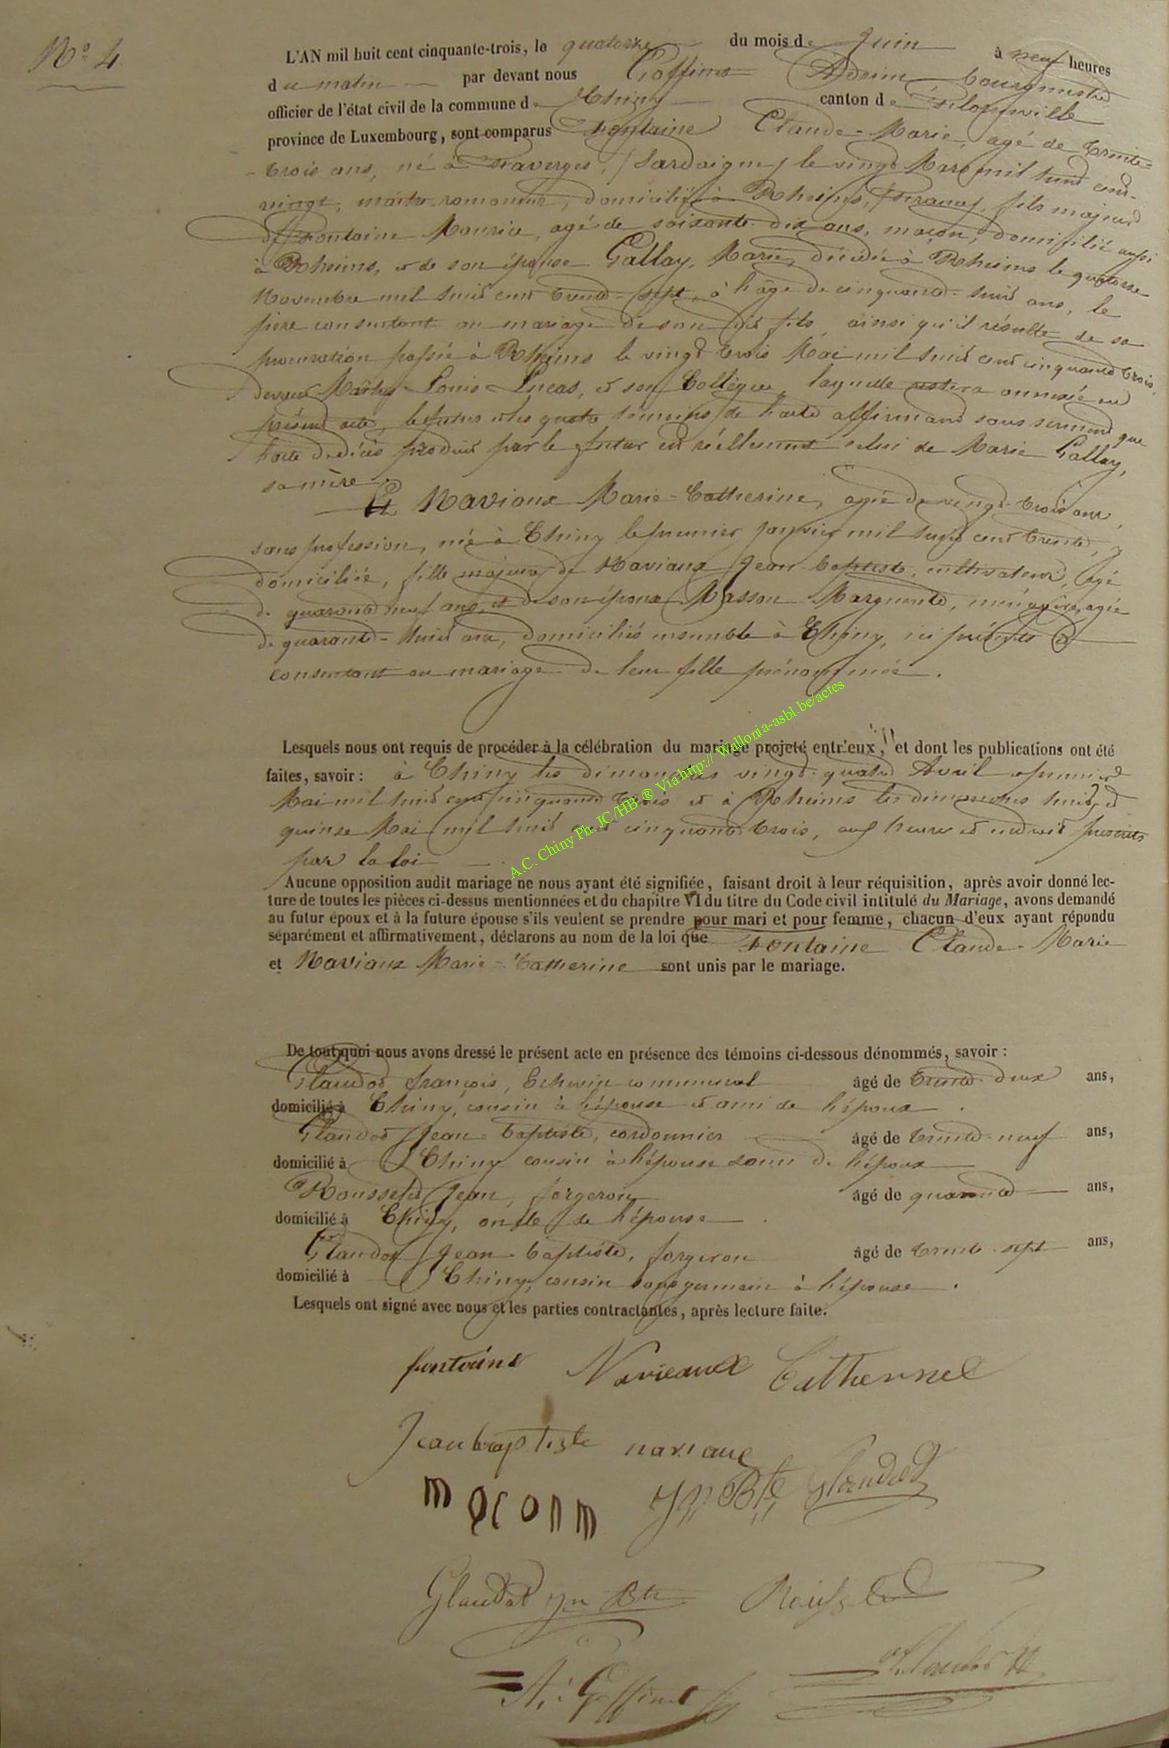 N° 4
L'AN mil huit cent cinquante-trois, le quatorze du mois de Juin à neuf heures
du matin par devant nous Goffinet Adrien bourgmestre
officier de l'état civil de la commune de Chiny canton de Florenville
province de Luxembourg, sont comparus Fontaine Claude-Marie, agé de trente-
trois ans, né à Faverges, (Sardaigne) le vingt Mars mil huit cent-
vingt, maître ramoneur, domicilié à Rheims, (France) fils majeur
de Fontaine Maurice, agé de soixante dix ans, maçon, domicilié aussi
à Rheims, et de son épouse Gallay, Marie, décédée à Rheims le quatorze
Novembre mil huit cent trente-sept, à l'âge de cinquante-huit ans, le
père consentant au mariage de son dit fils, ainsi qu'il résulte de sa
procuration passée à Rheims le vingt trois Mai mil huit cent cinquante trois
devant Maître Louis Lucas, et son Collègue, laquelle restera annexée au
présent acte, le futur et les quatre témoins de l'acte affirmant sous serment que
l'acte de décès produit par le futur est réellement celui de Marie Gallay,
sa mère.
Et Naviaux Marie-Catherine, agée de vingt-trois ans,
sans profession, née à Chiny le premier janvier mil huit cent trente,
domiciliée, fille majeure de Naviaux Jean-baptiste, cultivateur, agé
de quarante neuf ans, et de son épouse Masson Marguerite, ménagère, agée
de quarante-huit ans, domiciliés ensemble à Chiny, ici présents et
consentant au mariage de leur fille prénommée.
Lesquels nous ont requis de procéder à la célébration du mariage projeté entr'eux, et dont les publications ont été
faites, savoir : à Chiny les dimanches vingt-quatre Avril et premier
Mai mil huit cent cinquante trois et à Rheims les dimanches huit et
quinze Mai mil huit cent cinquante trois, aux heures et endroit prescrits
par la loi
Aucune opposition audit mariage ne nous ayant été signifiée, faisant droit à leur réquisition, après avoir donné lec-
ture de toutes les pièces ci-dessus mentionnées et du chapitre VI du titre du Code civil intitulé du Mariage, avons demandé
au futur époux et à la future épouse s'ils veulent se prendre pour mari et pour femme, chacun d'eux ayant répondu
séparément et affirmativement, déclarons au nom de la loi que Fontaine Claude-Marie
et Naviaux Marie-Catherine sont unis par le mariage.
A.C. Chiny Ph. JC/HB ® Via http:// Wallonia-asbl.be/actes
De tout quoi nous avons dressé le présent acte en présence des témoins ci-dessous dénommés, savoir :
Glaudot françois, Echevin communal âgé de trente-deux ans,
domicilié à Chiny, cousin à l'épouse et ami de l'époux.
Glaudot Jean-baptiste, cordonnier âgé de trente-neuf ans,
domicilié à Chiny cousin à l'épouse et ami de l'époux
Rousseld Jean, forgeron âgé de quarante ans,
domicilié à Chiny, oncle de l'épouse.
Glaudot Jean-baptiste, forgeron âgé de trente-sept ans,
domicilié à Chiny, cousin sous germain à l'épouse.
Lesquels ont signé avec nous et les parties contractantes, après lecture faite.
funtaine Navieaux Catherinee
Jean baptiste naviaux
Jn Bte Glaudot
Glaudot Jn Bte
A. Goffinet